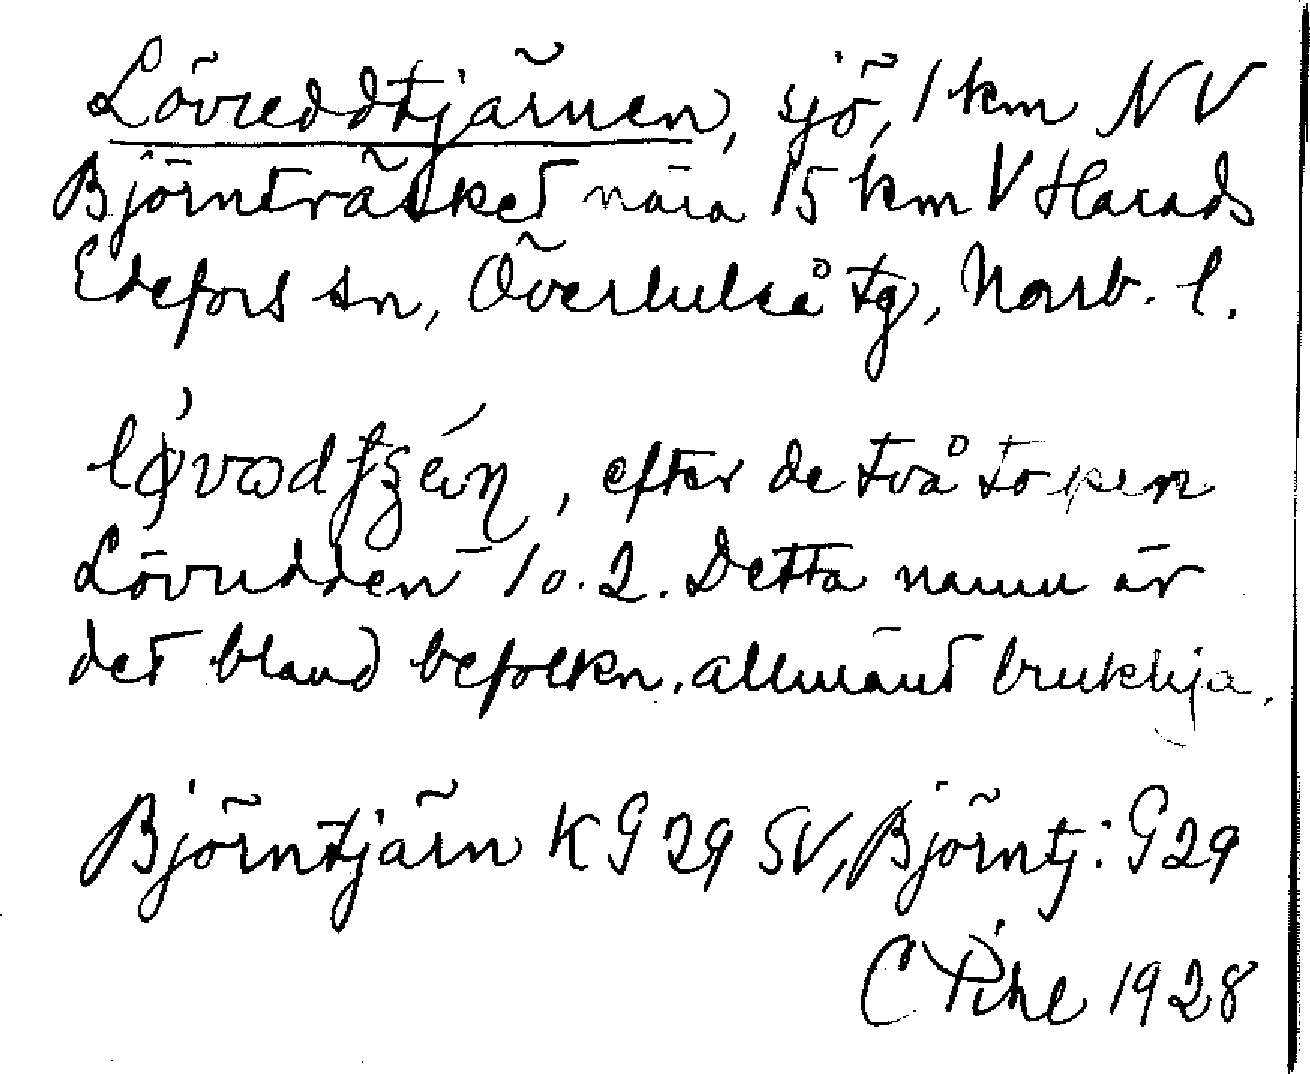 Lövreddtjärnen, sjö, 1 km NV
Björnträsket nära 15 km V Harads
Edefors sn, Överluleå tg, Norrb. l.
efter de två to
Lövudden 1 o. 2. Detta namn är
det bland befolkn. allmänt brukliga.
Björntjärn K G 29 SV, Björntj: G 29
C Pihl 1928